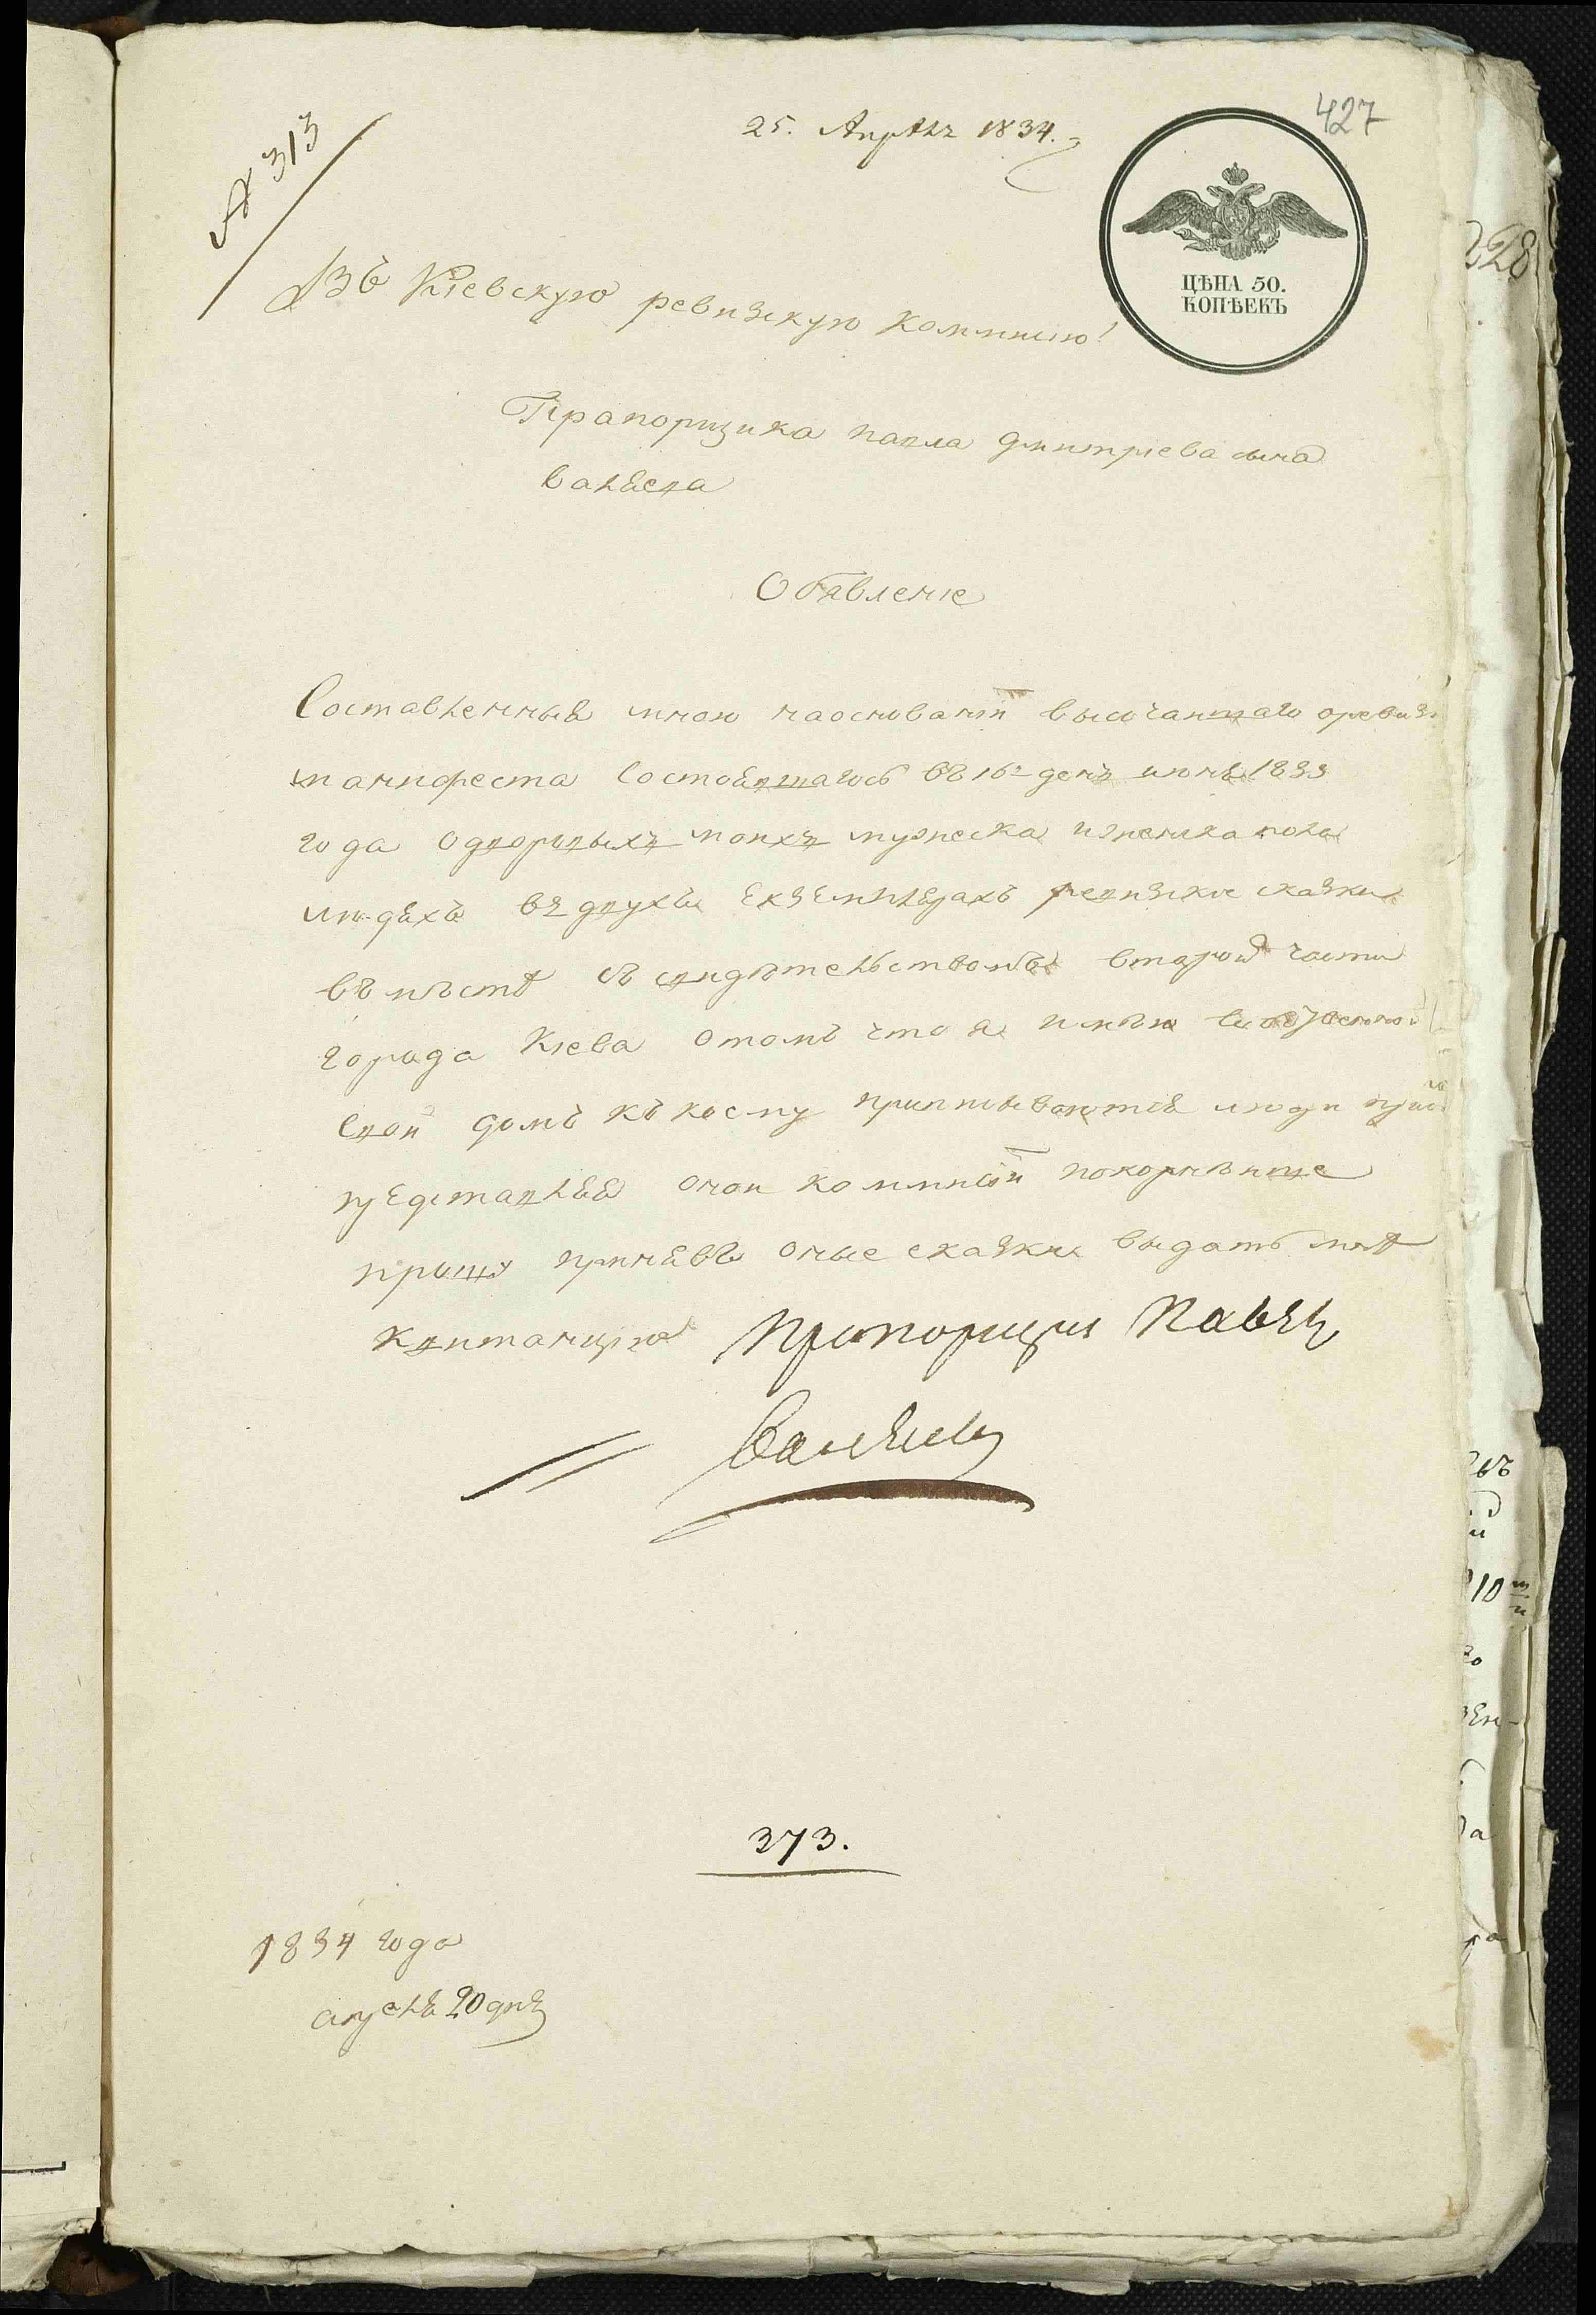 427
25. Апрѣля 1834.
№ 313
ЦѢНА 50.
КОПѢЕКЪ
Въ Кіевскую ревизкую коммисію!
Прапорщика павла дмитріева сына
валяева
Обявленіе
Составленныя мною наоснованіи высочаишаго оревиз
манифеста состоявшагось въ 16 день июня 1833
года одворовыхъ моихъ мужеска иженска пола
людяхъ въ двухъ екземплярахъ ревизкие сказки
въмѣстѣ съ свидѣтельствомъ второй части
города Кіева отомъ что я имѣю
свои домъ къ коему приписываются люди при
представляя онои коммисіи покорнѣише
прошу принявъ оные сказки выдать мнѣ
квитанцію Прапорщик Павел
373.
1834 года
апреля 20 дня
228